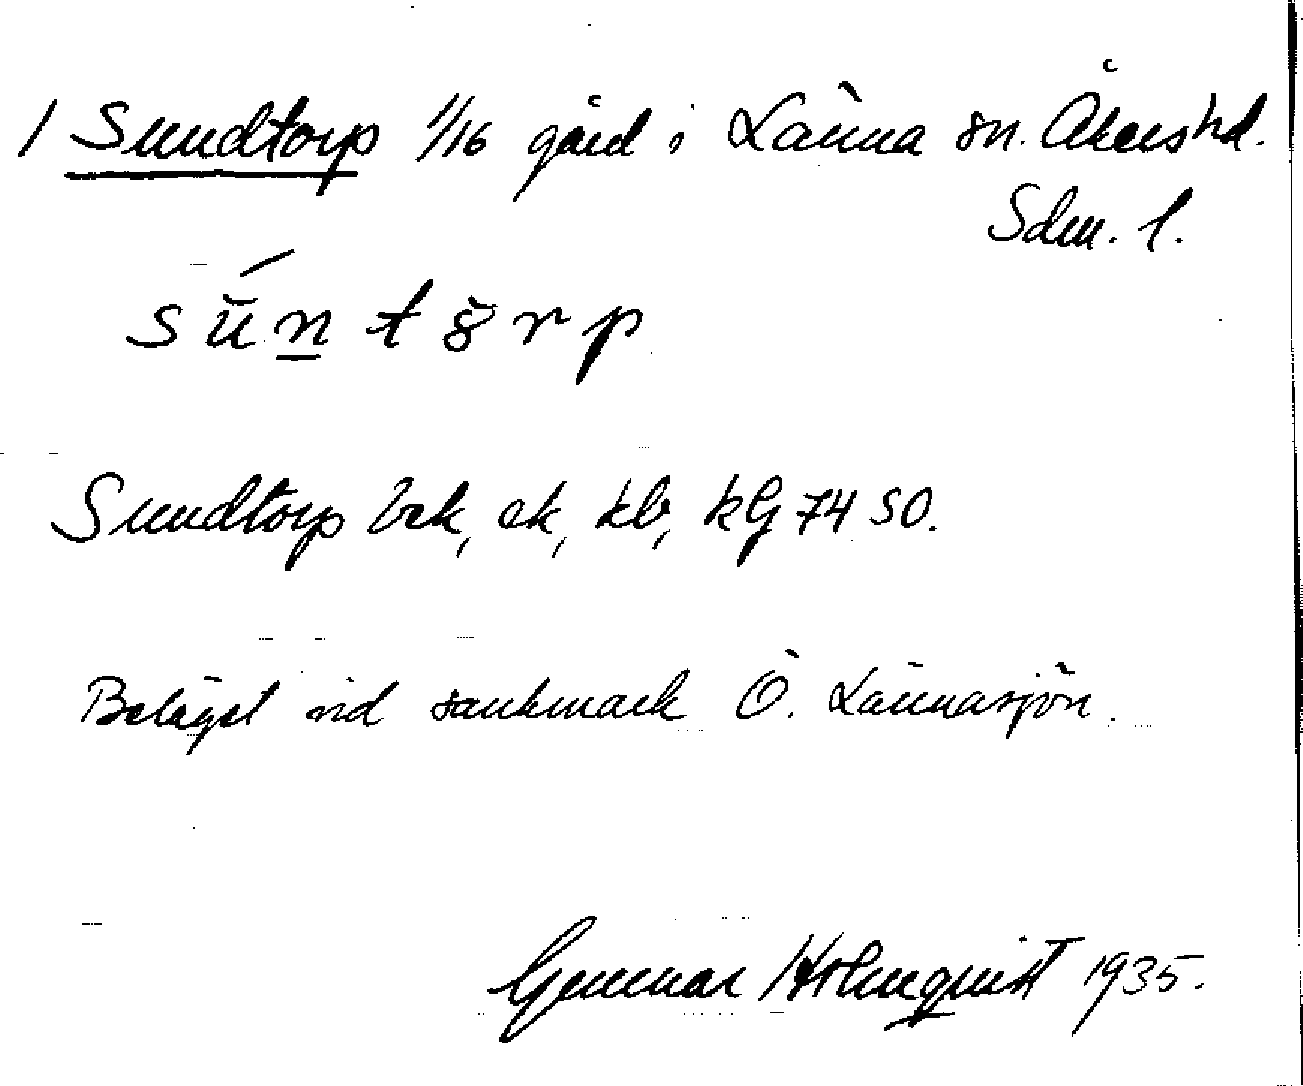 1 Sundtorp 1/16 gård i Länna sn. Åkers hd.
Sdm. l.
sùn̲tȣrp
Sundtorp bek, ek, kb, kG 74 SO.
Beläget vid sankmark Ö. Lännasjön.
Gunnar Holmquist 1935.